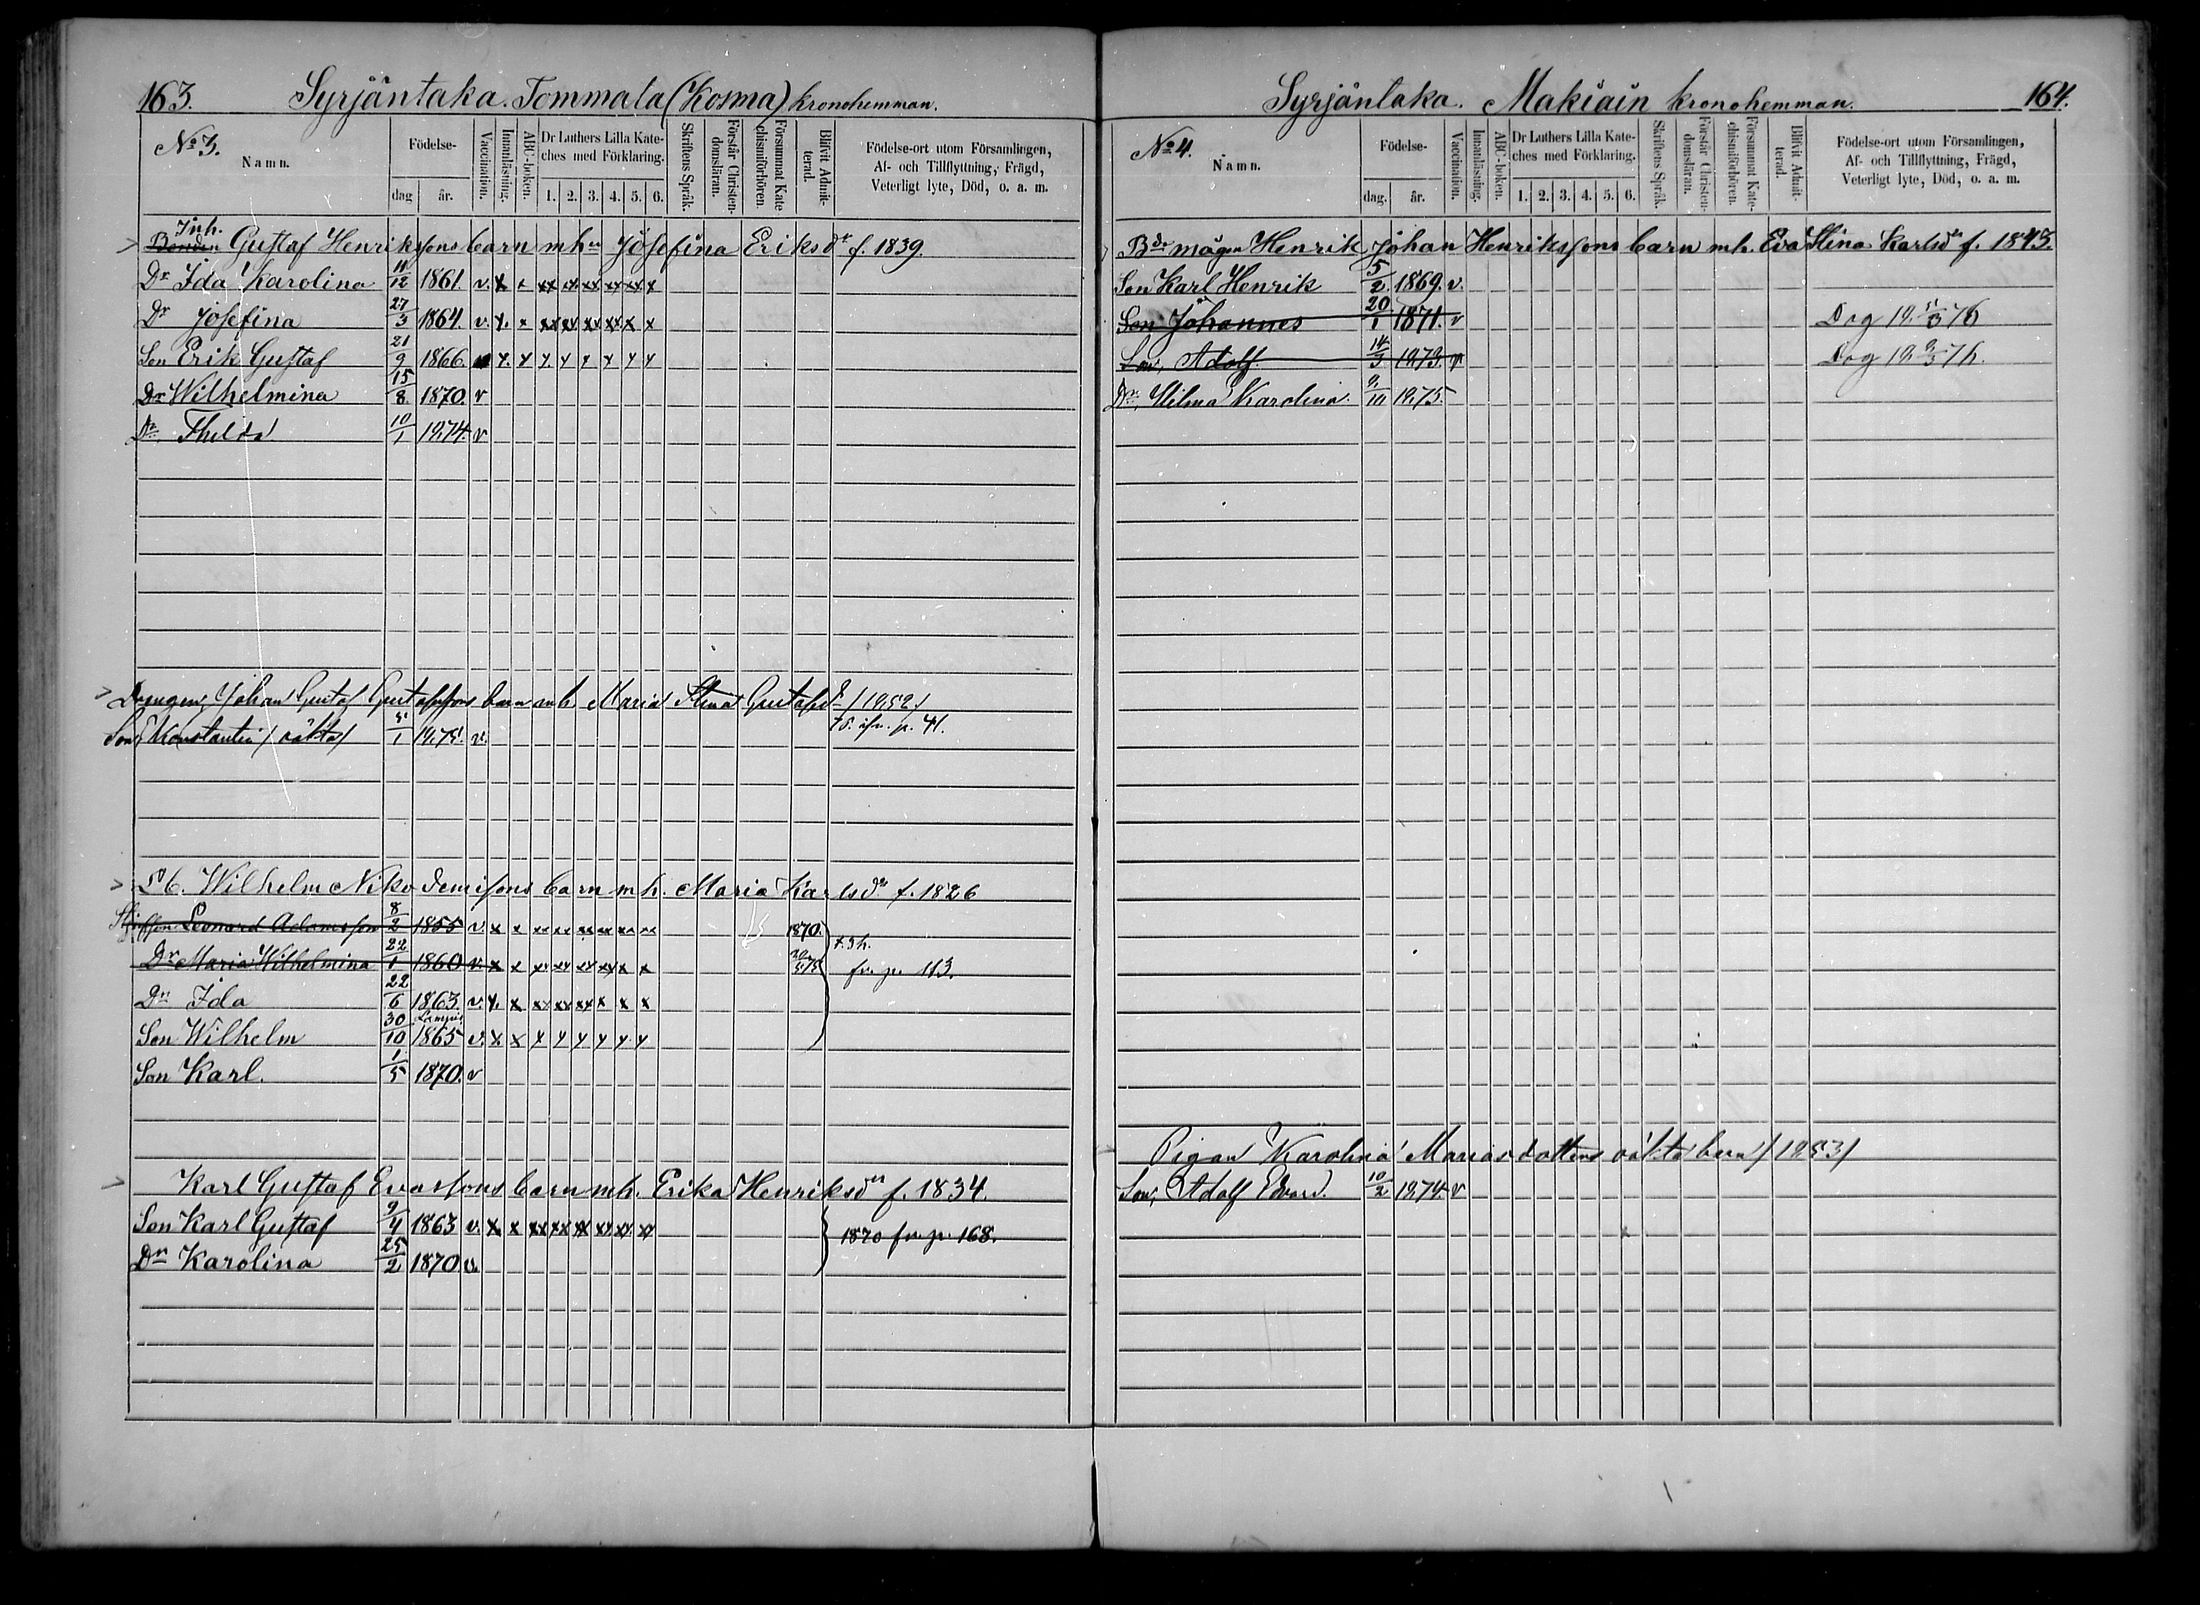 163. Syrjäntaka. Tommala (Kosma) kronohemman.
No 3.
Namn.
Födelse-
dag
år.
Vaccination.
Innanläsning.
ABC-boken.
Dr Luthers Lilla Kate-
ches med Förklaring.
1. 2. 3. 4. 5. 6.
Skriftens Språk.
Förstår Christen-
domsläran.
Försummat Kate
chismiförhören.
Blifvit Admit-
terad.
Födelse-ort utom Församlingen,
Af- och Tillflyttning, Frägd,
Veterligt lyte, Död, o. a. m.
Inh.
Bonden Gustaf Henrikssons barn mhu Josefina Eriksdr f. 1839.
Dr Ida Karolina 11/12 1861. v. x x xx xx xx xx xx x
Dr Josefina 27/3 1864. v. x. x xx xx. xx xx x x
Son Erik Gustaf 21/9 1866. x. x x x x x x x
Dr Wilhelmina 15/8 1870. v
Dr Thilda 10/1 1874. v
Drengen Johan Gustaf Gustafssons barn mh Maria Stina Gustafsd /1852/
Son Konstantin /oäkta/ 5/1 1875. v. fr. p. 41.
Wilhelm Nikodemissons barn mh. Maria Karlsdr f. 1826
Leonard Adamsson 8/2 1855 v x x xx xx xx xx xx xx 1870.
Dr Maria Wilhelmina 22/1 1860 v. x x xx xx xx xx x x fr. p. 113.
Dr Ida 22/6 1863 v. x. x xx xx xx x x x
Son Wilhelm 30/10 1865 v. x x x x x x x x
Son Karl. 1/5 1870. v
Karl Gustaf Evassons barn mh. Erika Henriksdr f. 1834.
Son Karl Gustaf 9/4 1863 v. x x xx xx xx xx. xx. xx 1870 fr. p. 168.
Dr Karolina 25/2 1870 v.
Syrjäntaka. Makiain kronohemman. 164.
No 4.
Namn.
Födelse-
dag.
år.
Vaccination.
Innanläsning.
ABC-boken.
Dr Luthers Lilla Kate-
ches med Förklaring.
1. 2. 3. 4. 5. 6.
Skriftens Språk.
Förstår Christen-
domsläran.
Försummat Kate-
chismiförhören.
Blifvit Admit-
terad.
Födelse-ort utom Församlingen,
Af- och Tillflyttning, Frägd,
Veterligt lyte, Död, o. a. m.
Bds mågen Henrik Johan Henrikssons barn mh. Eva Stina Karlsdr f. 1843.
Son Karl Henrik 5/2 1869. v.
Son Johannes 20/1 1871. v Dog 18 5/3 76
Son, Adolf 14/3 1873. v Dog 18 9/3 76.
Dr, Hilma Karolina. 9/10 1875.
Pigan Karolina Mariasdotters oäkta barn /1853/
Son, Adolf Edvard. 10/2 1874. v